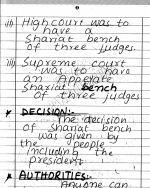 ii) High court was to
have a
Shariat bench
of three judges.
iii) Supreme court
was to have
an Appelate
Shariat bench
of three judges
* DECISION:-
The decision
of Shariat bench
was given by
the people
including the
president.
* AUTHORITIES:-
Anyone can